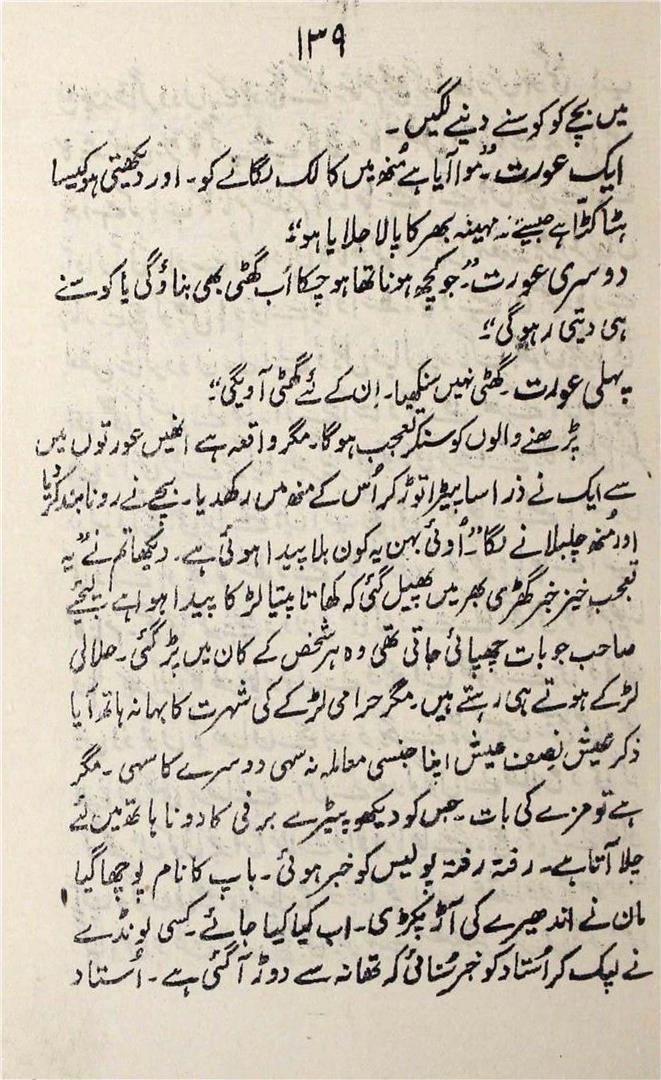 ۱۳۹
میں بچے کو کوسنے دینے لگیں ۔
ایک عورت ۔ ”مُوا آیا ہے مُنھ میں کالک لگانے کو ۔ اور دیکھتی ہو کیسا
ہٹا کٹّا ہے جیسے نہ مہینہ بھر کا پالا جلایا ہو“
دوسری عورت ۔ ”جو کچھ ہونا تھا ہو چکا اب گھٹی بھی بناؤگی یا کوسنے
ہی دیتی رہوگی“
پہلی عورت ۔ گھٹی نہیں سنکھیا ۔ اِن کے لئے گھٹی آویگی“
پڑھنے والوں کو سنکر تعجب ہوگا ۔ مگر واقعہ ہے انھیں عورتوں میں
سے ایک نے ذرا سا پیڑا توڑ کر اُس کے منھ میں رکھدیا ۔ بچے نے رونا بند کر دیا
اور مُنھ چلبلانے لگا ۔ ”اُوئی بہن یہ کون بلا پیدا ہوئی ہے ۔ دیکھا تم نے“ یہ
تعجب خیز خبر گھڑی بھر میں پھیل گئی کہ کھاتا پیتا لڑکا پیدا ہوا ہے لیجئے
صاحب جو بات چھپائی جاتی تھی وہ ہر شخص کے کان میں پڑ گئی ۔ حلالی
لڑکے ہوتے ہی رہتے ہیں ۔ مگر حرامی لڑکے کی شہرت کا بہانہ ہاتھ آیا
ذکر عیش نصف عیش اپنا جنسی معاملہ نہ سہی دوسرے کا سہی ۔ مگر
ہے تو مزے کی بات ۔ جس کو دیکھو پیڑے برفی کا دونا ہاتھ میں لئے
چلا آتا ہے ۔ رفتہ رفتہ پولیس کو خبر ہوئی ۔ باپ کا نام پوچھا گیا
ماں نے اندھیرے کی آڑ پکڑی ۔ اب کیا کیا جائے ۔ کسی لونڈے
نے لپک کر اُستاد کو خبر سُنائی کہ تھانہ سے دوڑ آ گئی ہے ۔ اُستاد